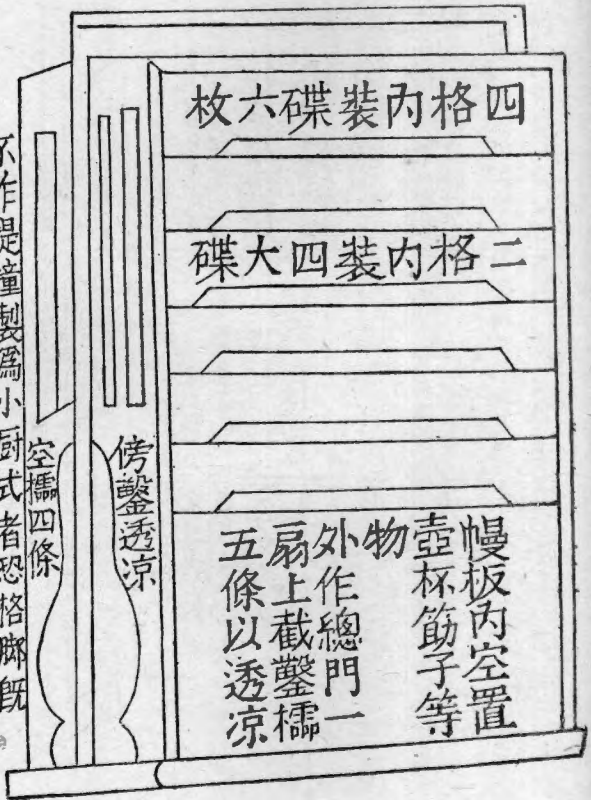 四格内裝碟六枚
二格内裝四大碟
幔板内空置
壺杯筯子等
物
外作總門一
扇上截鑿櫺
五條以透凉
傍鑿透凉
空櫺四條
不作提撞製爲小厨式者恐格脚旣